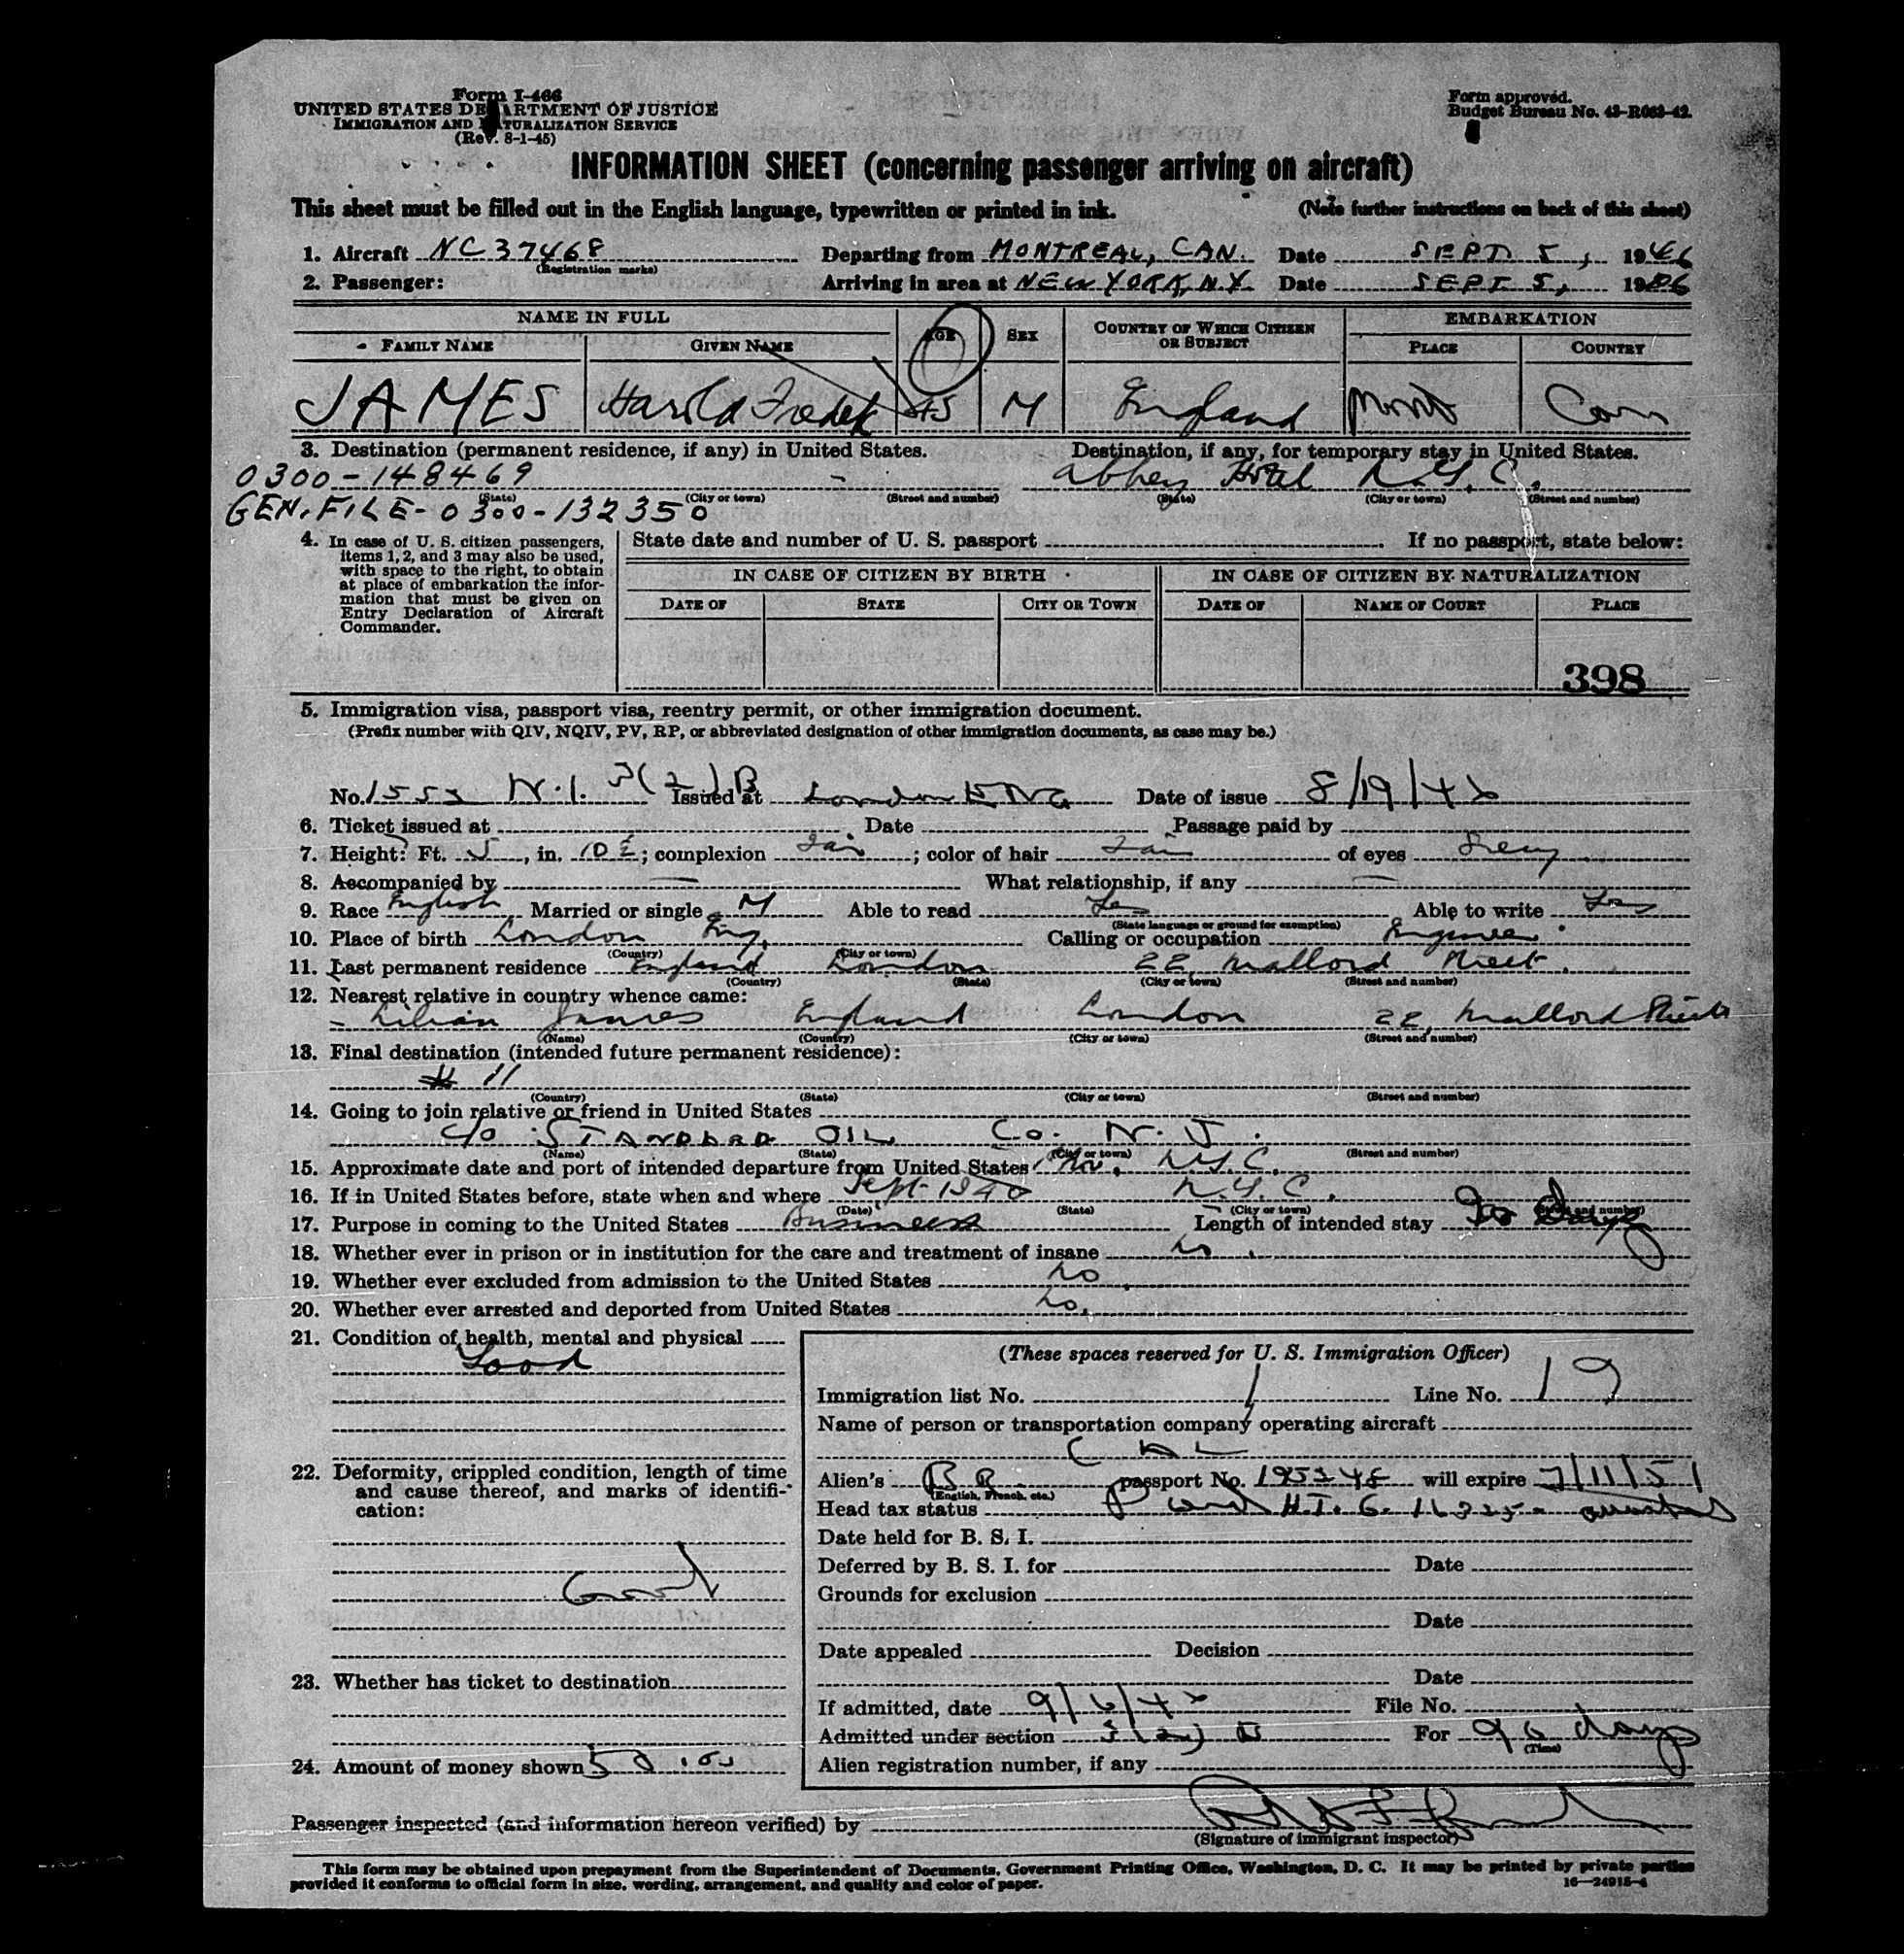 Form I-466
UNITED STATES DEPARTMENT OF JUSTICE
IMMIGRATION AND NATURALIZATION SERVICE
(Rev. 8-1-45)
Form approved.
Budget Bureau No. 43-R063-42.
INFORMATION SHEET (concerning passenger arriving on aircraft)
This sheet must be filled out in the English language, typewritten or printed in ink. (Note further instructions on back of this sheet)
1. Aircraft NC37468 Departing from MONTREAL, CAN. Date SEPT 5, 1946
(Registration marks)
2. Passenger: Arriving in area at NEW YORK, N.Y. Date SEPT 5, 1946
NAME IN FULL AGE SEX COUNTRY OF WHICH CITIZEN OR SUBJECT EMBARKATION
FAMILY NAME GIVEN NAME PLACE COUNTRY
JAMES Harold 45 M England Mont Can
3. Destination (permanent residence, if any) in United States. Destination, if any, for temporary stay in United States.
0300-148469 - Abbey Hotel N.Y.C.
(State) (City or town) (Street and number) (State) (City or town) (Street and number)
GEN. FILE - 0300-132350
4. In case of U. S. citizen passengers, items 1, 2, and 3 may also be used, with space to the right, to obtain at place of embarkation the information that must be given on Entry Declaration of Aircraft Commander.
State date and number of U. S. passport If no passport, state below:
IN CASE OF CITIZEN BY BIRTH IN CASE OF CITIZEN BY NATURALIZATION
DATE OF STATE CITY OR TOWN DATE OF NAME OF COURT PLACE
398
5. Immigration visa, passport visa, reentry permit, or other immigration document.
(Prefix number with QIV, NQIV, PV, RP, or abbreviated designation of other immigration documents, as case may be.)
No. N.I. 3(2)B Issued at London ENG Date of issue 8/19/46
6. Ticket issued at Date Passage paid by
7. Height: Ft. 5, in. 10 ; complexion Fair ; color of hair Fair of eyes Grey
8. Accompanied by — What relationship, if any —
9. Race English Married or single M Able to read Yes Able to write Yes
(State language or ground for exemption)
10. Place of birth London Eng. Calling or occupation Engineer
(Country) (City or town)
11. Last permanent residence England London 22, Mallord Street.
(Country) (State) (City or town) (Street and number)
12. Nearest relative in country whence came:
Lilian James England London 22, Mallord Street
(Name) (Country) (City or town) (Street and number)
13. Final destination (intended future permanent residence):
# 11
(Country) (State) (City or town) (Street and number)
14. Going to join relative or friend in United States
c/o STANDARD OIL Co. N. J.
(Name) (State) (City or town) (Street and number)
15. Approximate date and port of intended departure from United States N.Y.C.
16. If in United States before, state when and where Sept 1940 N.Y.C.
(Date) (State) (City or town) (Street and number)
17. Purpose in coming to the United States Business Length of intended stay Days
18. Whether ever in prison or in institution for the care and treatment of insane No.
19. Whether ever excluded from admission to the United States No.
20. Whether ever arrested and deported from United States No.
21. Condition of health, mental and physical
Good
22. Deformity, crippled condition, length of time and cause thereof, and marks of identification:
23. Whether has ticket to destination
24. Amount of money shown 50.00
(These spaces reserved for U. S. Immigration Officer)
Immigration list No. 1 Line No. 19
Name of person or transportation company operating aircraft
Alien's BR. passport No. will expire 7/11/51
(English, French, etc.)
Head tax status
Date held for B. S. I.
Deferred by B. S. I. for Date
Grounds for exclusion
Date
Date appealed Decision
Date
If admitted, date 9/6/46 File No.
Admitted under section 3(2) For 90 days
(Time)
Alien registration number, if any
Passenger inspected (and information hereon verified) by
(Signature of immigrant inspector)
This form may be obtained upon prepayment from the Superintendent of Documents, Government Printing Office, Washington, D. C. It may be printed by private parties
provided it conforms to official form in size, wording, arrangement, and quality and color of paper.
16—24915-4